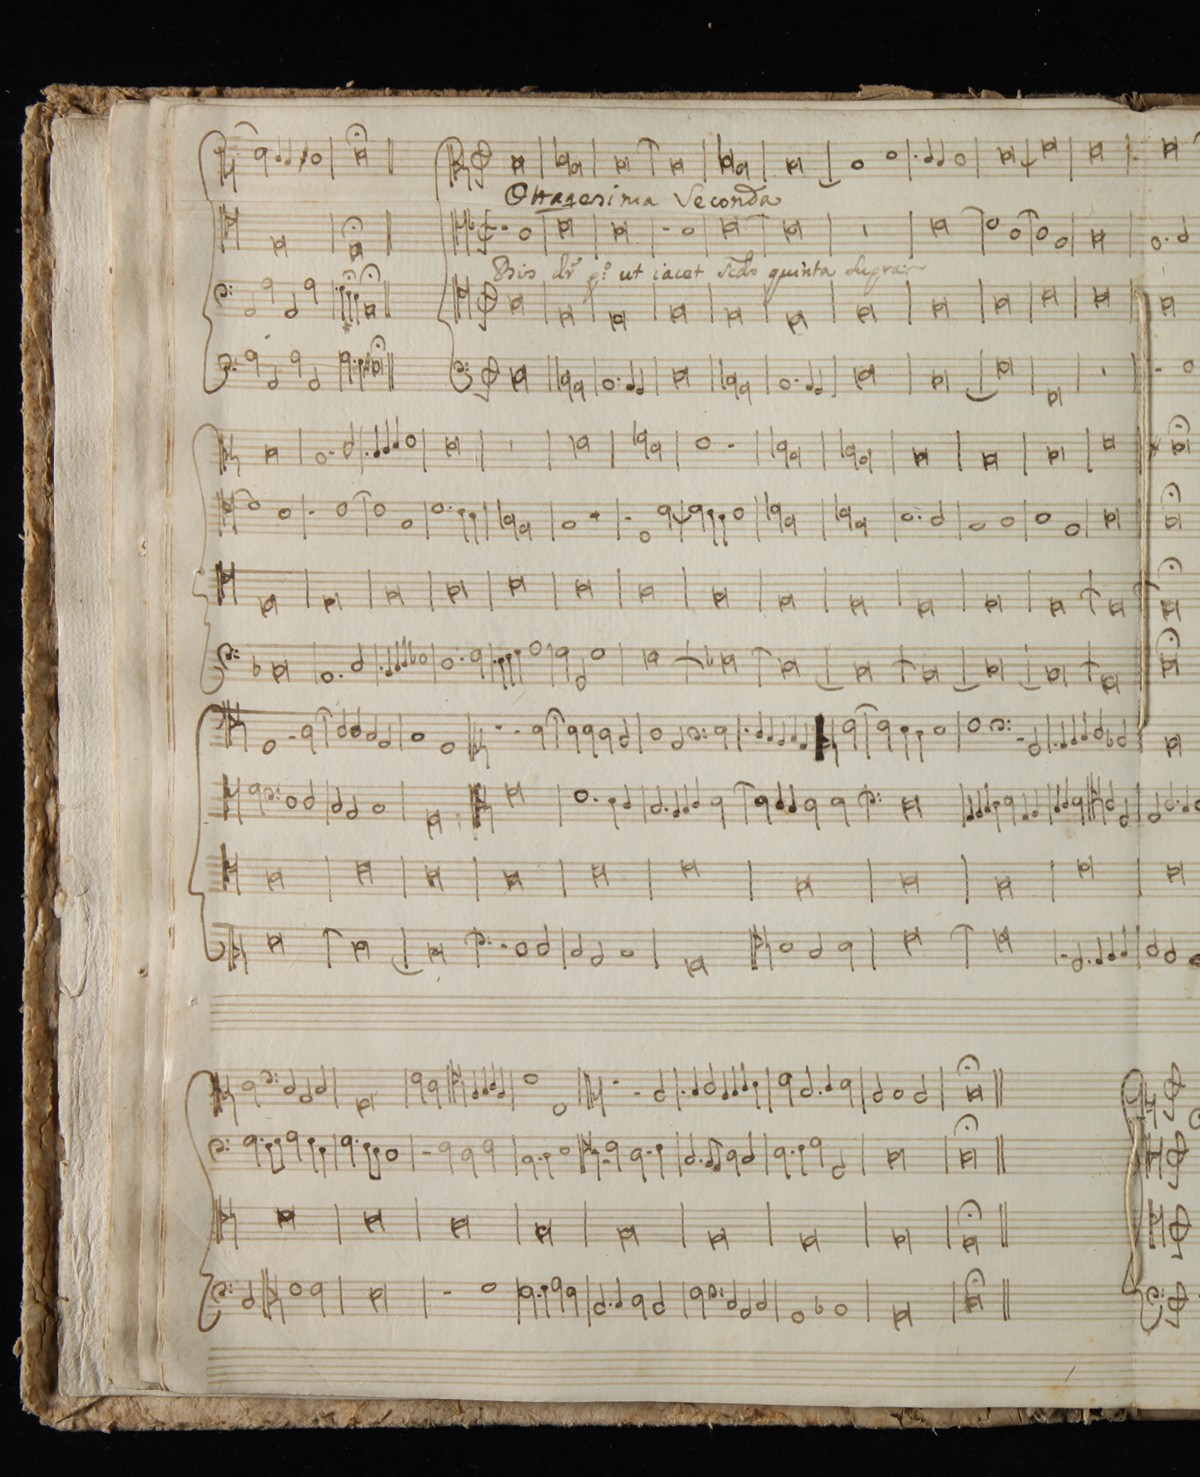 Ottagesima Seconda
Bis dr pº ut iacet scdo quinta supra